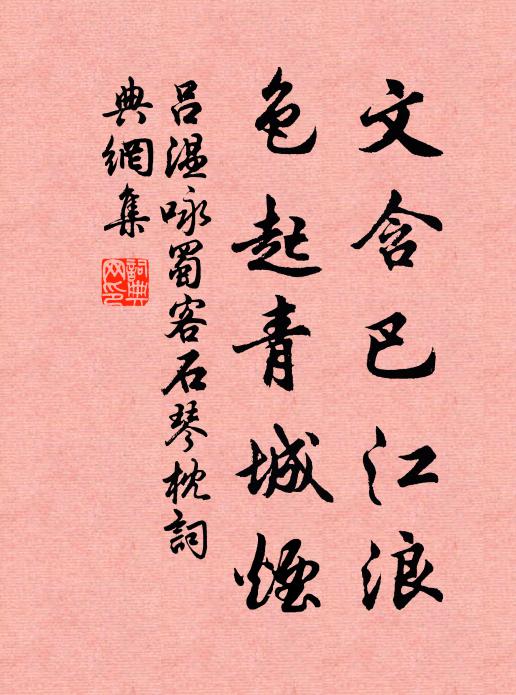 文含巴江浪
色起青城煙
吕温咏蜀客石琴枕詞
典網集
詞典
网印